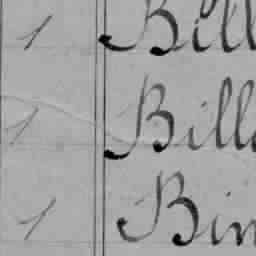 1 Bill
1 Bill
1 Bin